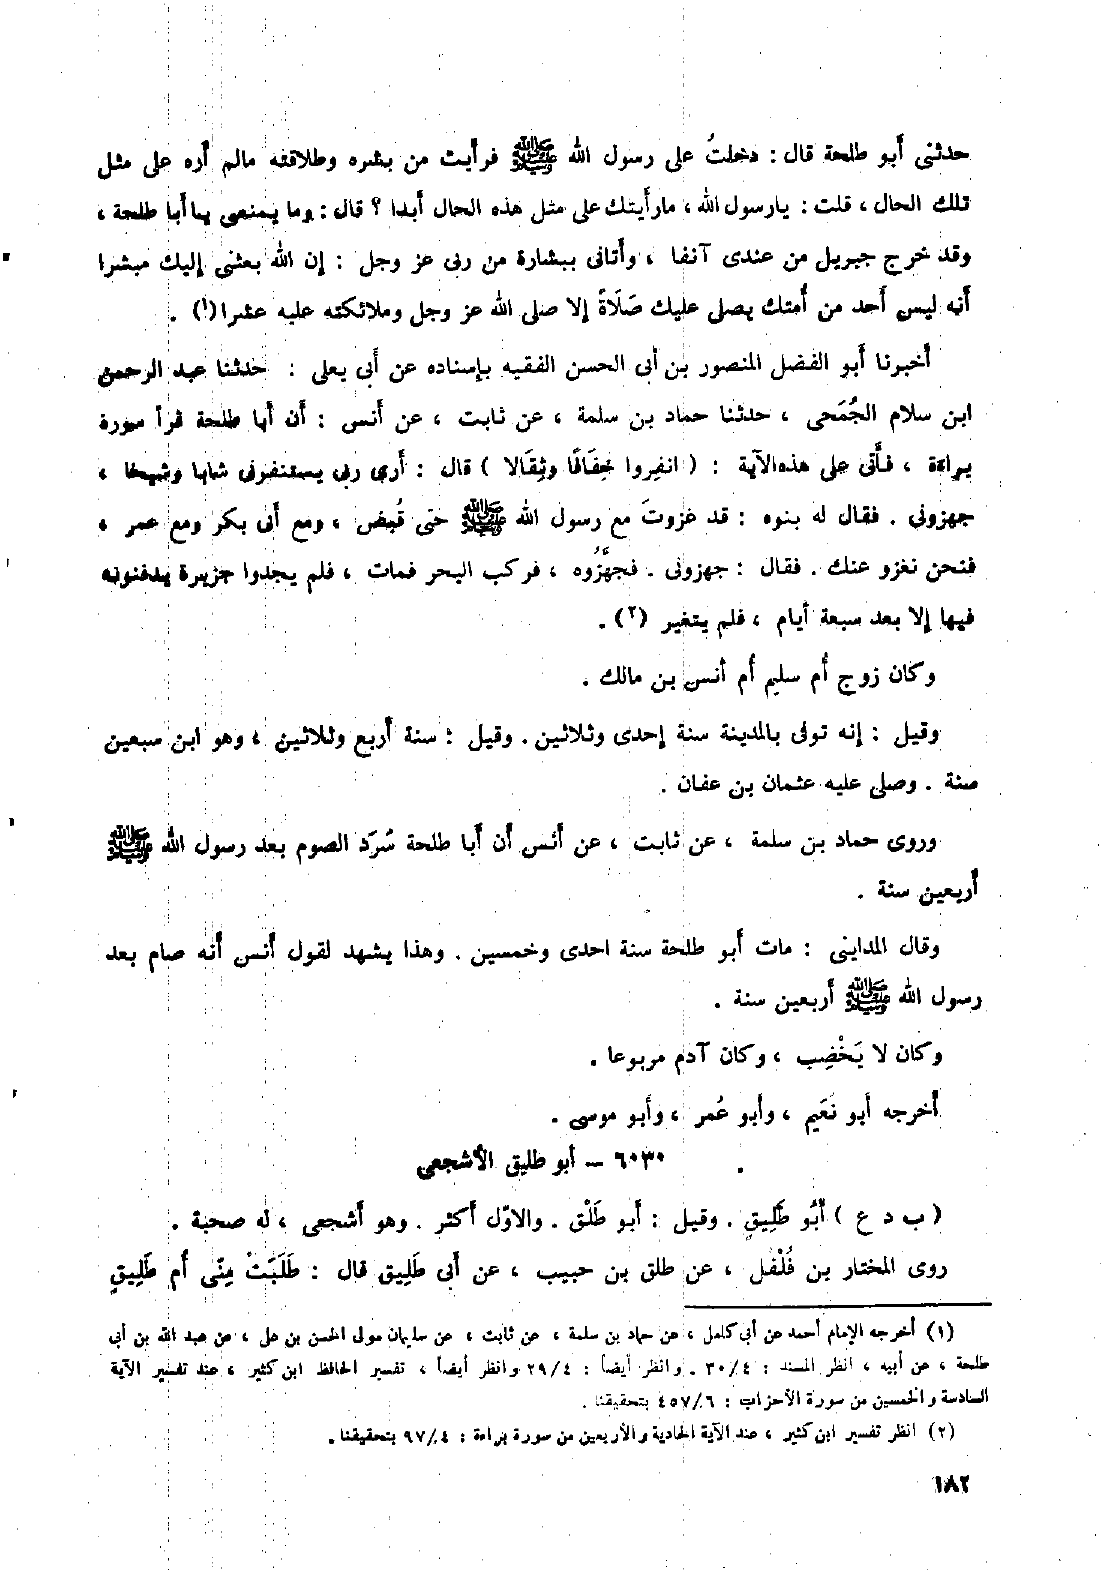 حدثنى أبو طلحة قال : دخلتُ على رسول الله ﷺ فرأيت من بشره وطلاقته مالم أره على مثل
تلك الحال ، قلت : يارسول الله ، مارأيتك على مثل هذه الحال أبدا ؟ قال : وما يمنعنى يا أبا طلحة ،
وقد خرج جبريل من عندى آنفا ، وأتانى ببشارة من ربى عز وجل : إن الله بعثنى إليك مبشرا
أنه ليس أحد من أمتك يصلى عليك صَلَاةً إلا صلى الله عز وجل وملائكته عليه عشرا (١) .
أخبرنا أبو الفضل المنصور بن أبى الحسن الفقيه بإسناده عن أبى يعلى : حدثنا عبد الرحمن
ابن سلام الجُمَحى ، حدثنا حماد بن سلمة ، عن ثابت ، عن أنس : أن أبا طلحة قرأ سورة
براءة ، فأتى على هذه الآية : ( انفِروا خِفَافًا وثِقَالا ) قال : أرى ربى يستنفرنى شابا وشيخا ،
جهزونى . فقال له بنوه : قد غزوتَ مع رسول الله ﷺ حتى قُبض ، ومع أبى بكر ومع عمر ،
فنحن نغزو عنك . فقال : جهزونى . فجهَّزُوه ، فركب البحر فمات ، فلم يجدوا جزيرة يدفنونه
فيها إلا بعد سبعة أيام ، فلم يتغير (٢) .
وكان زوج أم سليم أم أنس بن مالك .
وقيل : إنه توفى بالمدينة سنة إحدى وثلاثين . وقيل : سنة أربع وثلاثين ، وهو ابن سبعين
سنة . وصلى عليه عثمان بن عفان .
وروى حماد بن سلمة ، عن ثابت ، عن أنس أن أبا طلحة سَرَد الصوم بعد رسول الله ﷺ
أربعين سنة .
وقال المداينى : مات أبو طلحة سنة احدى وخمسين . وهذا يشهد لقول أنس أنه صام بعد
رسول الله ﷺ أربعين سنة .
وكان لا يَخْضِب ، وكان آدم مربوعا .
أخرجه أبو نَعَيم ، وأبو عُمر ، وأبو موسى .
٦٠٣٠ – أبو طليق الأشجعى
( ب د ع ) أبُو طَلِيقٍ . وقيل : أبو طَلْق . والاوّل أكثر . وهو أشجعى ، له صحبة .
روى المختار بن فُلْفُل ، عن طلق بن حبيب ، عن أبى طَلِيق قال : طَلَبَتْ مِنّى أم طَلِيقٍ
(١) أخرجه الإمام أحمد عن أبى كامل ، عن حماد بن سلمة ، عن ثابت ، عن سليمان مولى الحسن بن على ، عن عبد الله بن أبى
طلحة ، عن أبيه ، انظر المسند : ٣٠/٤ . وانظر أيضاً : ٢٩/٤ وانظر أيضاً ، تفسير الحافظ ابن كثير ، عند تفسير الآية
السادسة والخمسين من سورة الأحزاب : ٤٥٧/٦ بتحقيقنا .
(٢) انظر تفسير ابن كثير ، عند الآية الحادية والأربعين من سورة براءة : ٩٧/٤ بتحقيقنا .
١٨٢